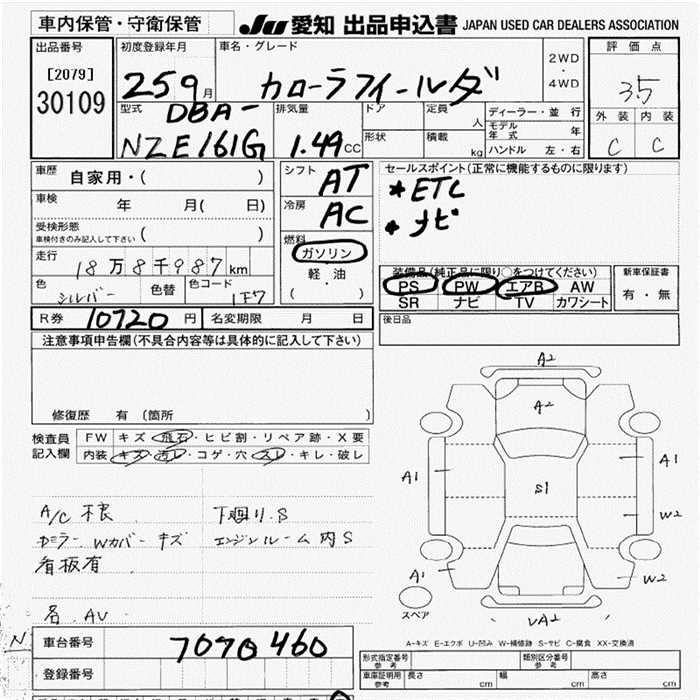 車内保管・守衛保管
JU 愛知 出品申込書 JAPAN USED CAR DEALERS ASSOCIATION
出品番号 初度登録年月 車名・グレード 2WD・4WD 評価点
[2079]
30109 259月 カローラフィールダー 3.5
型式 DBA- 排気量 ドア 定員 人 ディーラー・並行 外装 内装
NZE161G 1.49CC 形状 積載 kg モデル年式 年 C C
ハンドル 左・右
車歴 自家用・( ) シフト AT セールスポイント(正常に機能するものに限ります)
車検 年 月( 日) 冷房 AC *ETC
受検形態 ( ) *ナビ
車検付きのみ記入して下さい
走行 18万8千987km 燃料 ガソリン 装備品(純正品に限り○をつけてください) 新車保証書
軽・油 PS PW エアB AW 有・無
色 シルバー 色替 色コード 1F7 ( ) SR ナビ TV カワシート
R券 10720円 名変期限 月 日 後日品
注意事項申告欄(不具合内容等は具体的に記入して下さい)
修復歴 有 〔箇所
検査員 FW キズ・飛石・ヒビ割・リペア跡・X要
記入欄 内装 キズ・汚レ・コゲ・穴・スレ・キレ・破レ
A2
A2
A1 A1
S1
W2
A1 W2
スペア A2
A/C不良 下廻り.S
Dミラー Wカバー キズ エンジンルーム内S
看板有
名. AV
A-キズ E-エクボ U-凹み W-補修跡 S-サビ C-腐食 XX-交換済
車台番号 7070460
登録番号
形式指定番号 参考 類別区分番号 参考
車庫証明用 参考 長さ cm 幅 cm 高さ cm